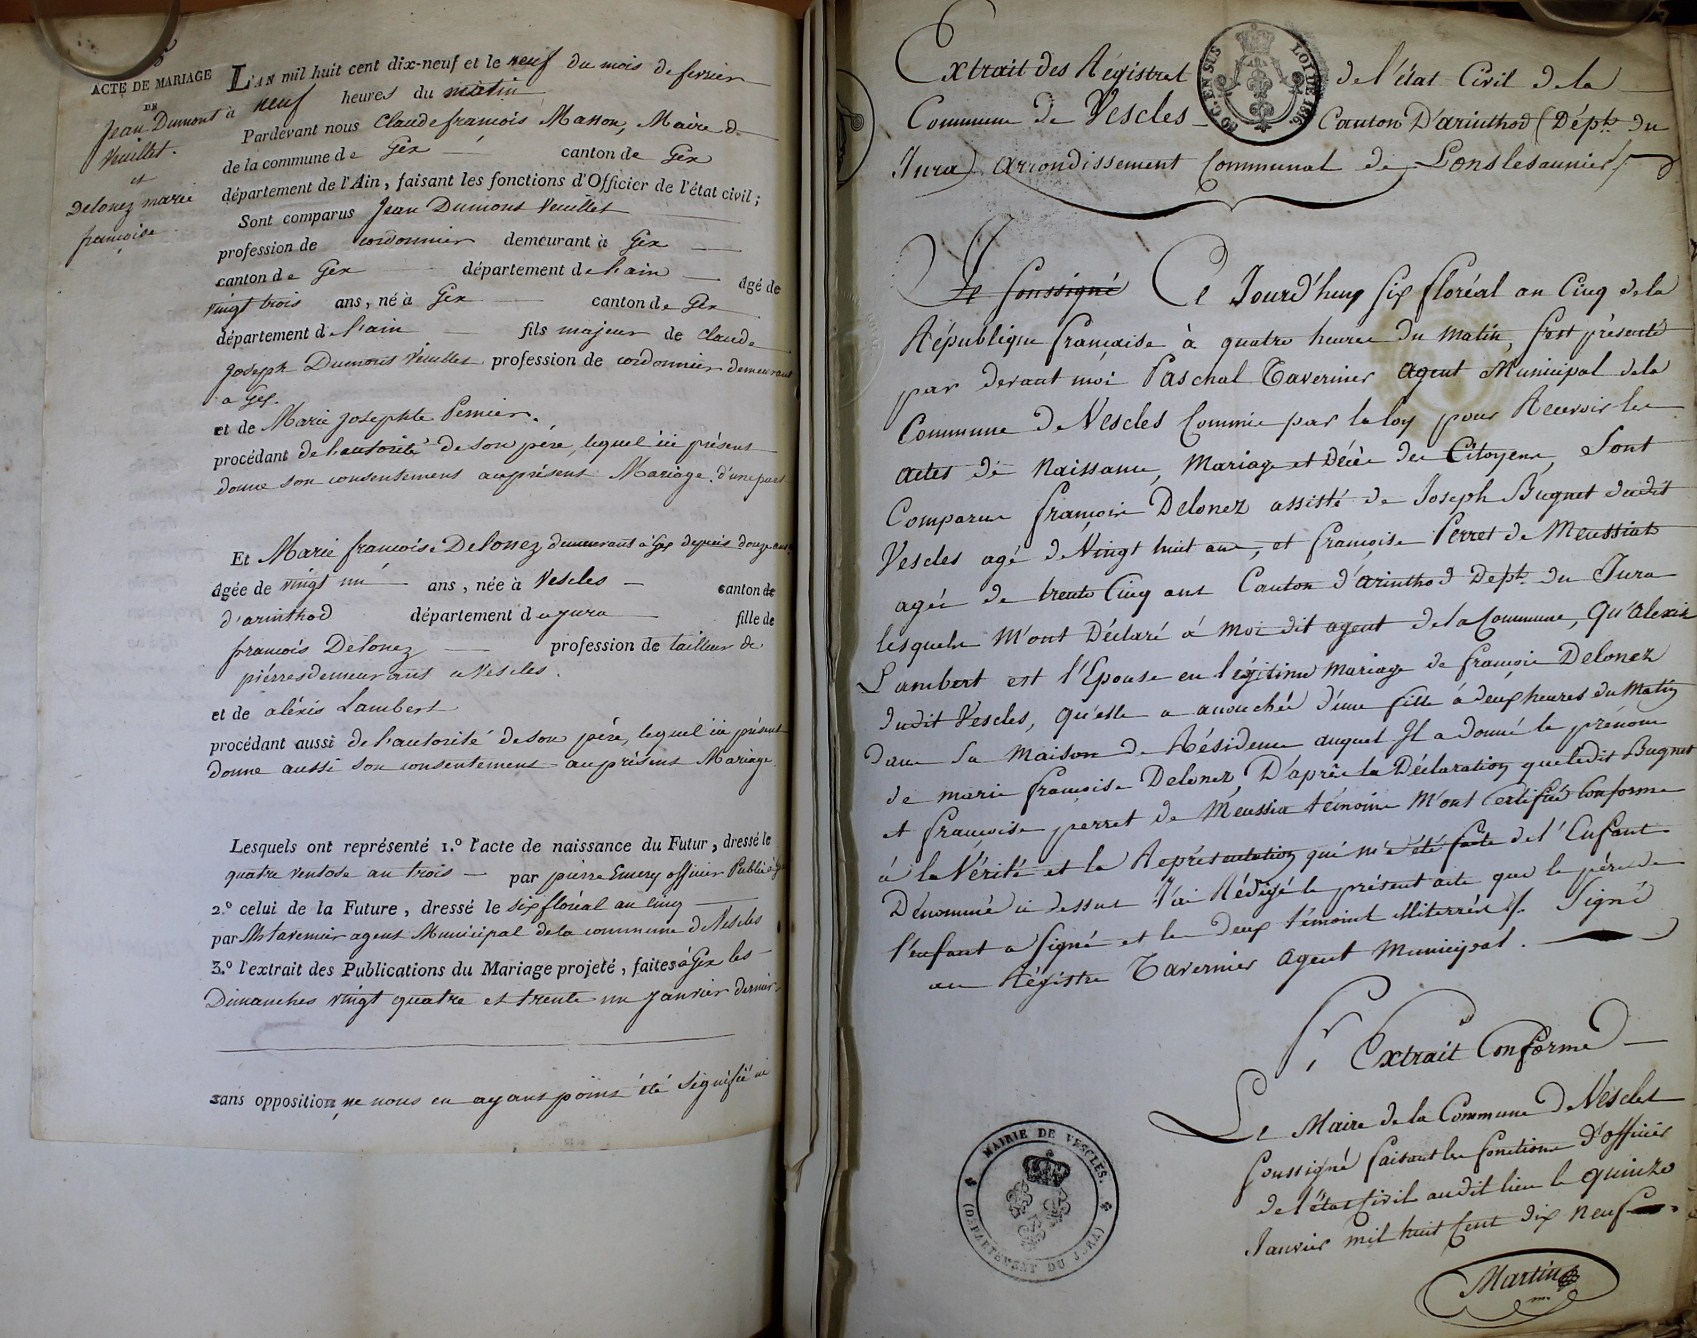 ACTE DE MARIAGE
DE
Jean Dumont
Vuillet.
et
Delonez marie
françoise
L'AN mil huit cent dix-neuf et le neuf du mois de fevrier
à neuf heures du matin
Pardevant nous Claude françois Masson, Maire de
de la commune de Gex canton de Gex
département de l'Ain, faisant les fonctions d'Officier de l'état civil;
Sont comparus Jean Dumont Vuillet
profession de cordonnier demeurant à Gex
canton de Gex département de l'ain agé de
vingt trois ans, né à Gex canton de Gex
département de l'ain fils majeur de Claude
Joseph Dumont Vuillet profession de cordonnier demeurant
a Gex.
et de Marie Josephte Pernier.
procédant de l'autorité de son père, lequel ici présent
donne son consentement au présent Mariage. d'une part
Et Marie françoise Delonez, demeurant à Gex depuis douze ans
âgée de vingt un ans, née à Vescles canton de
d'arinthod département du jura fille de
françois Delonez profession de tailleur de
pierres demeurant a Vescles.
et de aléxis Lambert
procédant aussi de l'autorité de son père, lequel ici présent
donne aussi son consentement au présent Mariage.
Lesquels ont représenté 1.° l'acte de naissance du Futur, dressé le
quatre ventose an trois par pierre Emery officier Public à Gex
2.° celui de la Future, dressé le six floréal an cinq
par Mr tavernier agent Municipal de la commune de Vescles
3.° l'extrait des Publications du Mariage projeté, faites à Gex les
Dimanches vingt quatre et trente un janvier dernier
sans opposition, ne nous en ayant point été signifié ni
Extrait des Régistres de l'état Civil de la
Commune de Vescles Canton D'arinthod (Dépt. du
Jura) arrondissement Communal de Lonslesaunier
60 C. EN SUS
LOI DE 1816
Je Soussigné Ce Jourd'huy six floréal an Cinq de la
République française à quatre heures du matin, s'est présenté
par devant moi Paschal Tavernier agent Municipal de la
Commune de Vescles Commis par la loy pour Recevoir les
actes de Naissance, Mariage et Décès des Citoyens, Sont
Comparus françois Delonez assisté de Joseph Bugnet dudit
Vescles agé de Vingt huit ans, et françoise Perret de Meussiat
agée de trente Cinq ans Canton d'arinthod Dept. du Jura
lesquels M'ont Déclaré à moi dit agent de la Commune, Qu'alexis
Lambert est l'Epouse en légitime mariage de françois Delonez
dudit Vescles, qu'elle a accouchée d'une fille à deux heures du Matin
dans Sa Maison de Résidence auquel Il a donné le prénom
de marie françoise Delonez, D'après la Déclaration que ledit Bugnet
et françoise perret de Meussia témoins M'ont Certifié Conforme
à la Vérité et la Représentation qui m'a été faite de l'Enfant
Dénommé ci dessus J'ai Rédigé le présent acte que le père de
l'enfant a Signé et les deux témoins illiterrés. Signé
au Régistre Tavernier Agent Municipal.
Pr Extrait Conforme
Le Maire de la Commune de Vescles
Soussigné faisant les fonctions d'officier
de l'état Civil audit lieu le quinze
Janvier mil huit Cent dix neuf
Martin
MAIRIE DE VESCLES.
(DÉPARTEMENT DU JURA)